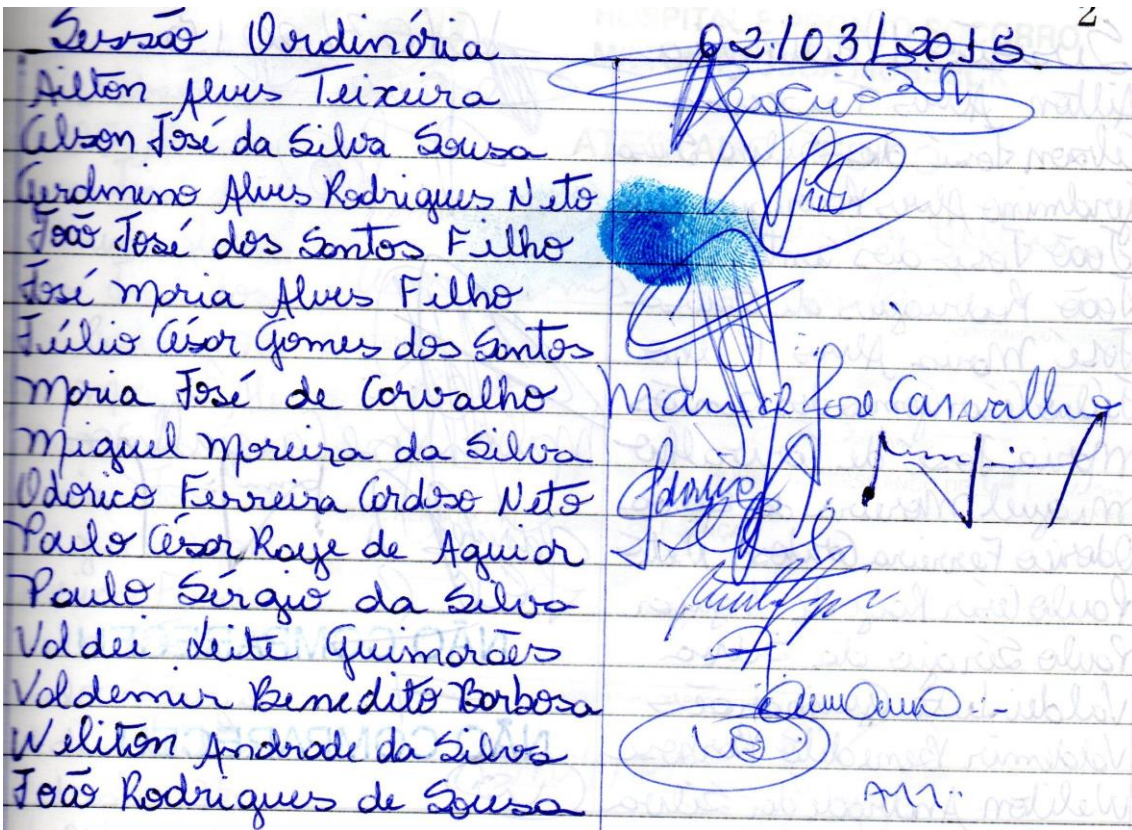 2
Sessão Ordinária 02/03/2015
Ailton Alves Teixeira
Celson José da Silva Sousa
Geralmino Alves Rodrigues Neto
João José dos Santos Filho
José Maria Alves Filho
Júlio César Gomes dos Santos
Maria José de Carvalho Maria José Carvalho
Miguel Moreira da Silva
Odorico Ferreira Cardoso Neto Odorico
Paulo César Raye de Aguiar
Paulo Sérgio da Silva
Valdei Leite Guimarães
Valdemir Benedito Barbosa
Weliton Andrade da Silva
João Rodrigues de Sousa